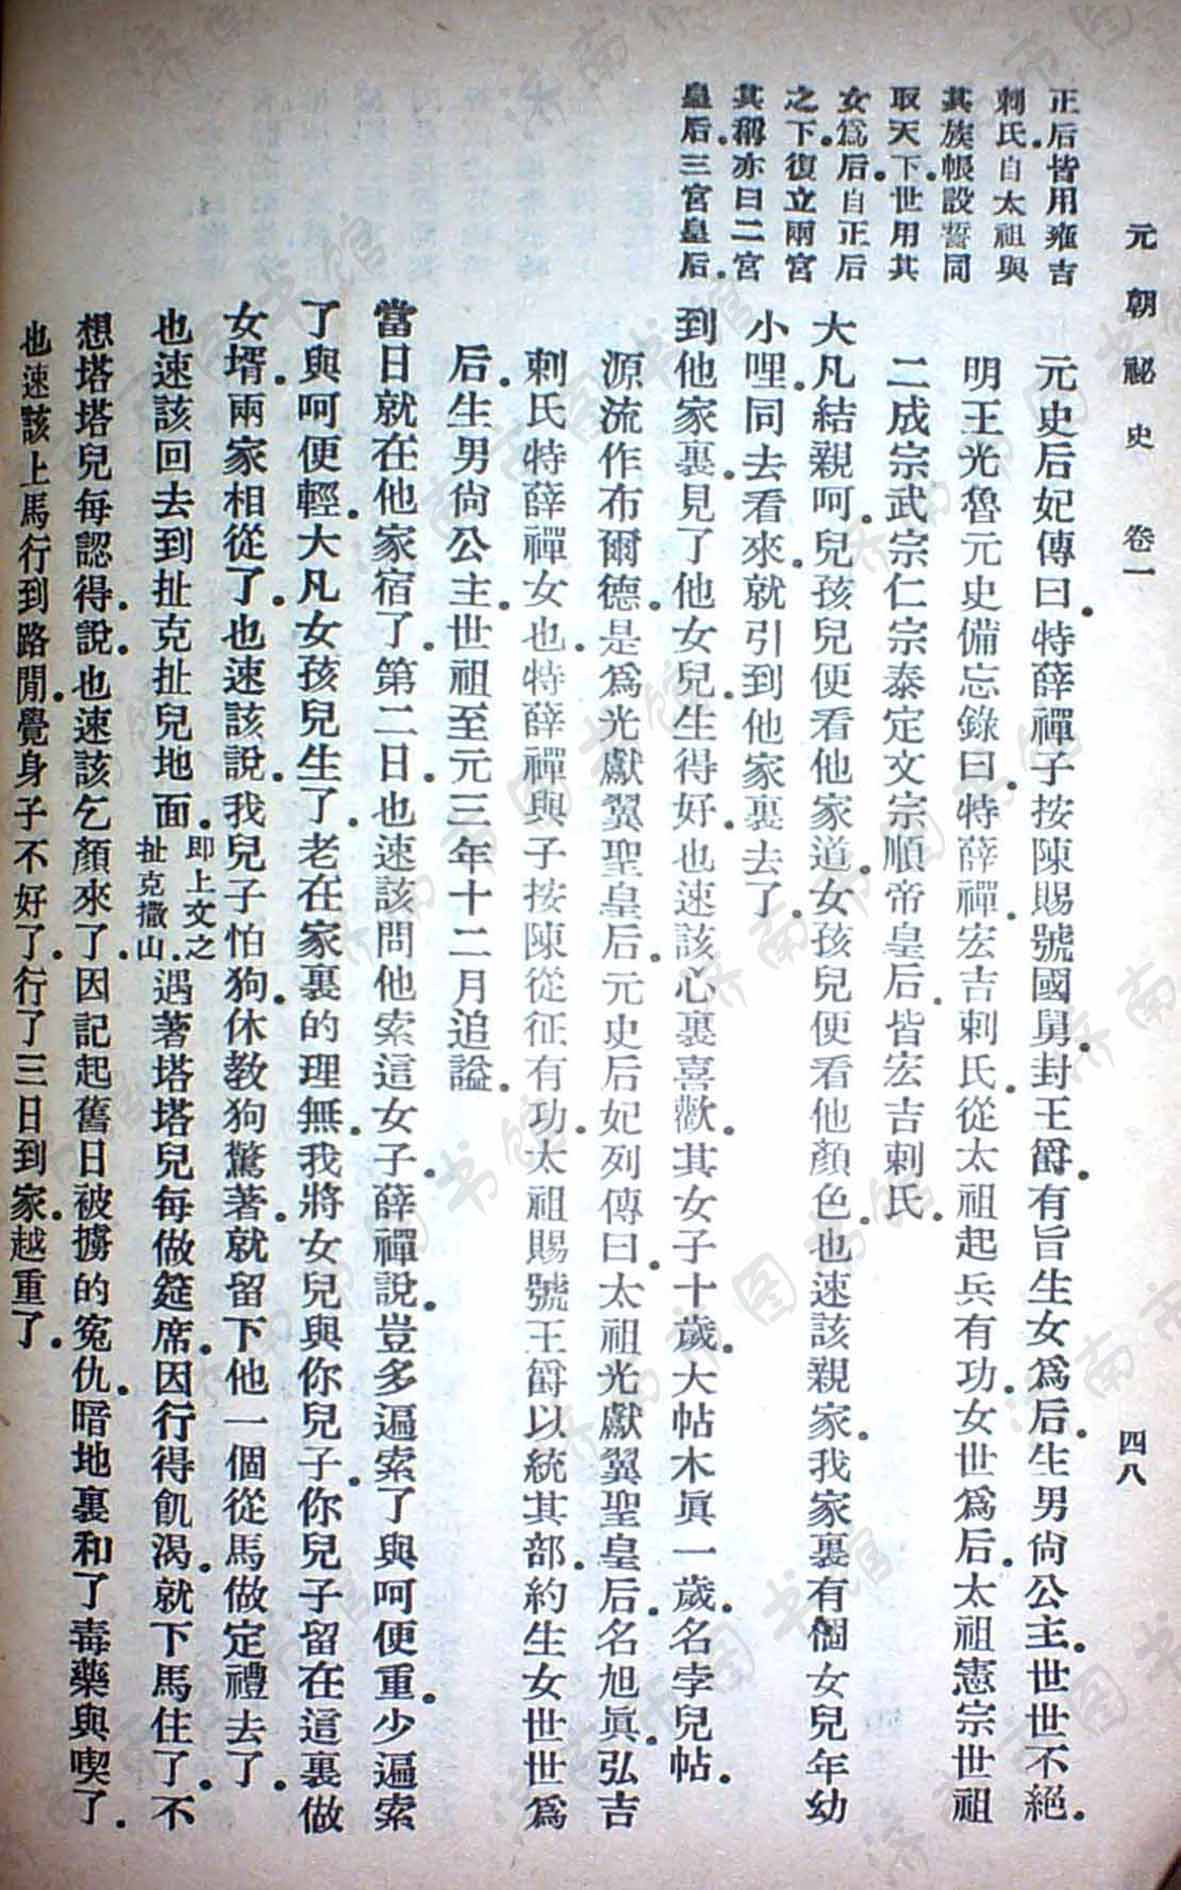 元朝祕史 卷一 四八
正后皆用雍吉
剌氏自太祖與
其族帳設誓同
取天下世用其
女爲后自正后
之下復立兩宮
其稱亦曰二宮
皇后三宮皇后
元史后妃傳曰特薛禪子按陳賜號國舅封王爵有旨生女爲后生男尙公主世世不絕
明王光魯元史備忘錄曰特薛禪宏吉剌氏從太祖起兵有功女世爲后太祖憲宗世祖
二成宗武宗仁宗泰定文宗順帝皇后皆宏吉剌氏
大凡結親呵兒孩兒便看他家道女孩兒便看他顏色也速該親家我家裏有個女兒年幼
小哩同去看來就引到他家裏去了
到他家裏見了他女兒生得好也速該心裏喜歡其女子十歲大帖木眞一歲名孛兒帖
源流作布爾德是爲光獻翼聖皇后元史后妃列傳曰太祖光獻翼聖皇后名旭眞弘吉
剌氏特薛禪女也特薛禪與子按陳從征有功太祖賜號王爵以統其部約生女世世爲
后生男尙公主世祖至元三年十二月追謚
當日就在他家宿了第二日也速該問他索這女子薛禪說豈多遍索了與呵便重少遍索
了與呵便輕大凡女孩兒生了老在家裏的理無我將女兒與你兒子你兒子留在這裏做
女壻兩家相從了也速該說我兒子怕狗休教狗驚著就留下他一個從馬做定禮去了
也速該回去到扯克扯兒地面卽上文之扯克撒山遇著塔塔兒每做筵席因行得飢渴就下馬住了不
想塔塔兒每認得說也速該乞顏來了因記起舊日被擄的寃仇暗地裏和了毒藥與喫了
也速該上馬行到路閒覺身子不好了行了三日到家越重了
济南市图书馆